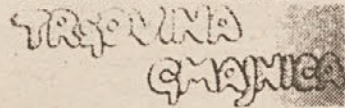 TRGOVINA
GMAJNICA